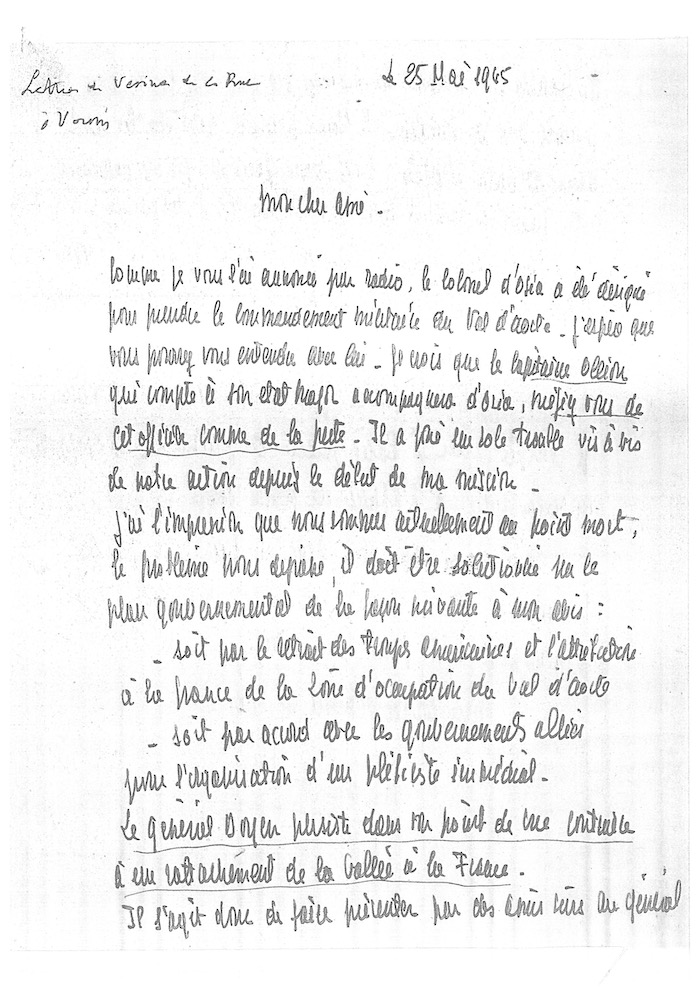 Lettre de Vesine de la Rue
à Voisin
Le 25 Mai 1945
Mon cher ami.
Comme je vous l'ai annoncé par radio, le Colonel d'Osia a été désigné
pour prendre le commandement militaire du Val d'Aoste. J'espère que
vous pourrez vous entendre avec lui. Je crois que le Capitaine
qui compte à son etat major accompagnera d'Osia, méfiez vous de
cet officier comme de la peste. Il a joué un role trouble vis à vis
de notre action depuis le début de ma mission.
J'ai l'impression que nous sommes actuellement au point mort,
le problème nous dépasse, il doit être solutionné sur le
plan gouvernemental de la façon suivante à mon avis :
- soit par le retrait des troupes américaines et l'attribution
à la France de la Zone d'occupation du Val d'Aoste
- soit par accord avec les gouvernements alliés
pour l'organisation d'un plébiscite immédiat.
Le général Doyen persiste dans son point de vue contraire
à un rattachement de la Vallée à la France.
Il s'agit donc de faire présenter par des amis surs au général